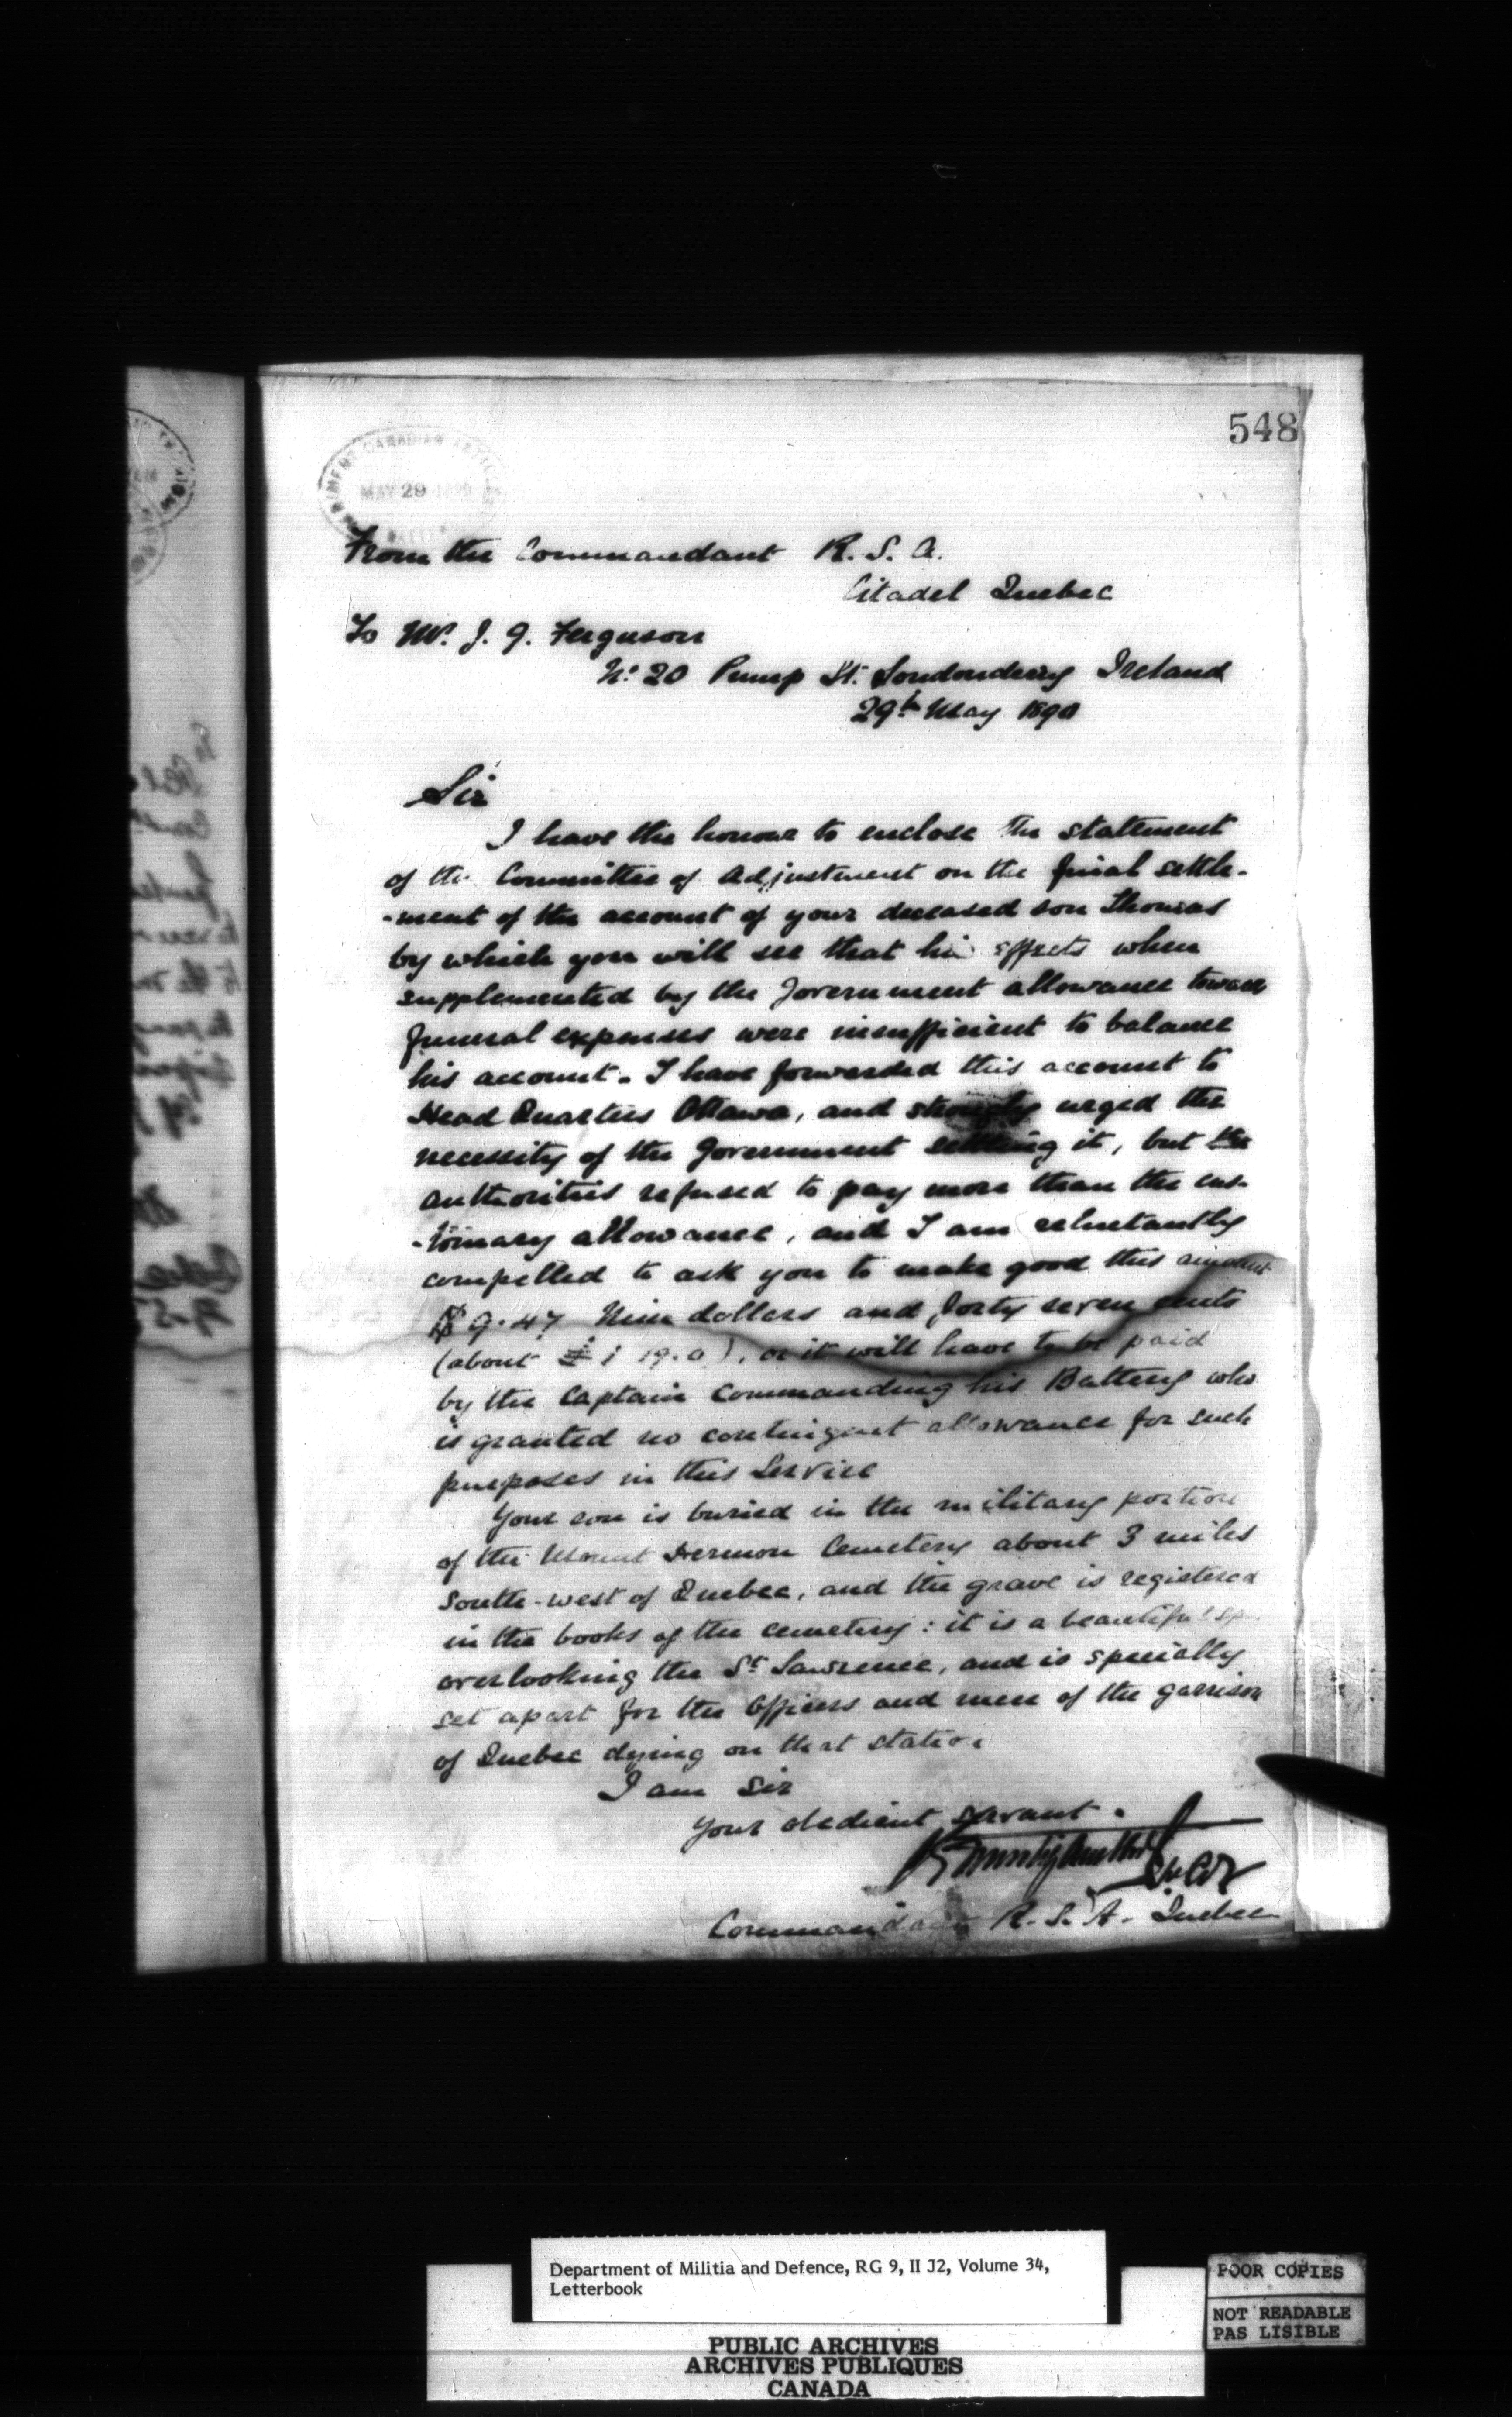 548
REGIMENT CANADIAN ARTILLERY
MAY 29 1890
From the Commandant R. S. A.
Citadel Quebec
To Mr. J. G. Ferguson
No. 20 Pump St. Londonderry Ireland
29th May 1890
Sir
I have the honour to enclose the statement
of the Committee of Adjustment on the final settle-
-ment of the account of your deceased son Thomas
by which you will see that his effects when
supplemented by the Government allowance toward
funeral expenses were insufficient to balance
his account. I have forwarded this account to
Head Quarters Ottawa, and strongly urged the
necessity of the Government settling it, but the
authorities refused to pay more than the cus-
-tomary allowance, and I am reluctantly
compelled to ask you to make good this amount
$9.47 Nine dollars and forty seven cents
(about £1 19.0), or it will have to be paid
by the Captain Commanding his Battery who
is granted no contingent allowance for such
purposes in this Service
Your son is buried in the military portion
of the Mount Hermon Cemetery about 3 miles
South-west of Quebec, and the grave is registered
in the books of the cemetery: it is a beautiful
overlooking the St Lawrence, and is specially
set apart for the Officers and men of the garrison
of Quebec dying on that station
I am Sir
Your obedient servant.
Commandant R. S. A. Quebec
Department of Militia and Defence, RG 9, II J2, Volume 34,
Letterbook
POOR COPIES
NOT READABLE
PAS LISIBLE
PUBLIC ARCHIVES
ARCHIVES PUBLIQUES
CANADA